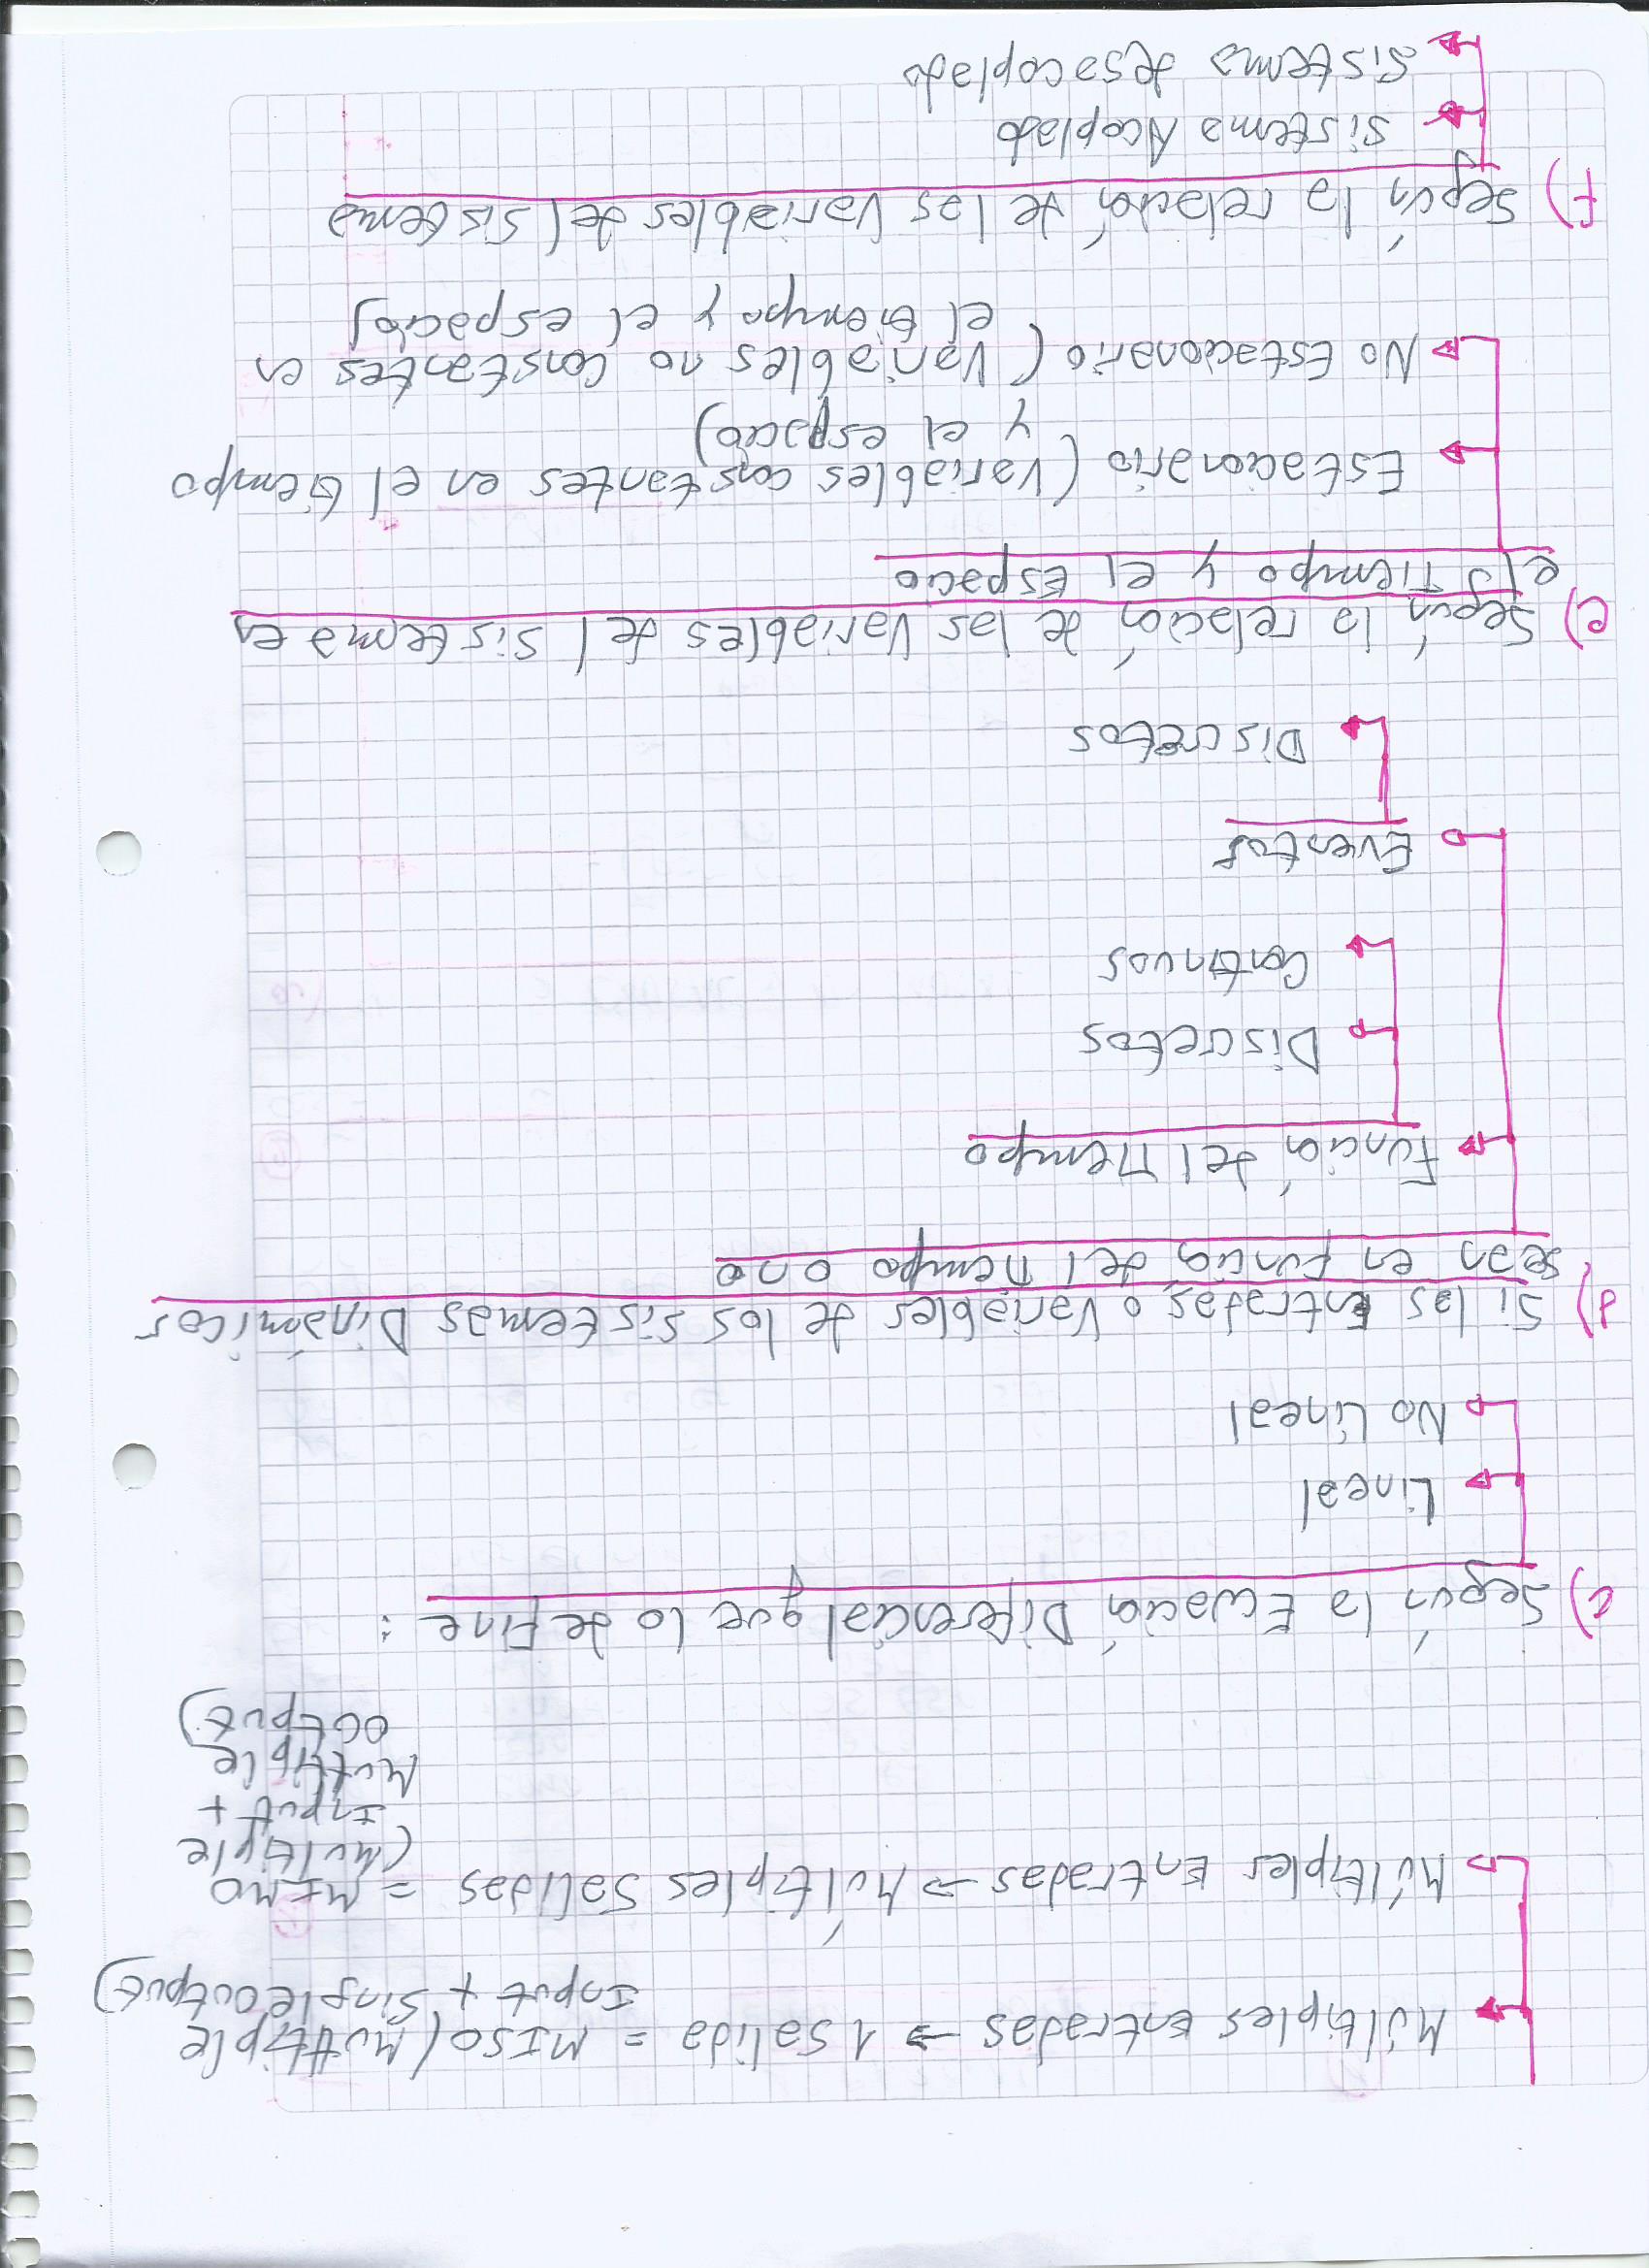 Múltiples Entradas → 1 Salida = MISO (Multtiple
Input + Single Output)
Múltiples Entradas → Múltiples Salidas = MIMO
(Multiple
Input +
Multiple
Output)
c) Según la Ecuación Diferencial que lo define :
Lineal
No Lineal
d) Si las Entradas o Variables de los sistemas Dinámicos
sean en función del Tiempo o no
Función del Tiempo
Discretos
Continuos
Eventos
Discretos
e) Según la relación de las Variables del sistema en
el Tiempo y el Espacio
Estacionario (Variables constantes en el tiempo
y el espacio)
No Estacionario (Variables no constantes en
el tiempo y el espacio)
f) Según la relación de las Variables del sistema
Sistema Acoplado
Sistema desacoplado